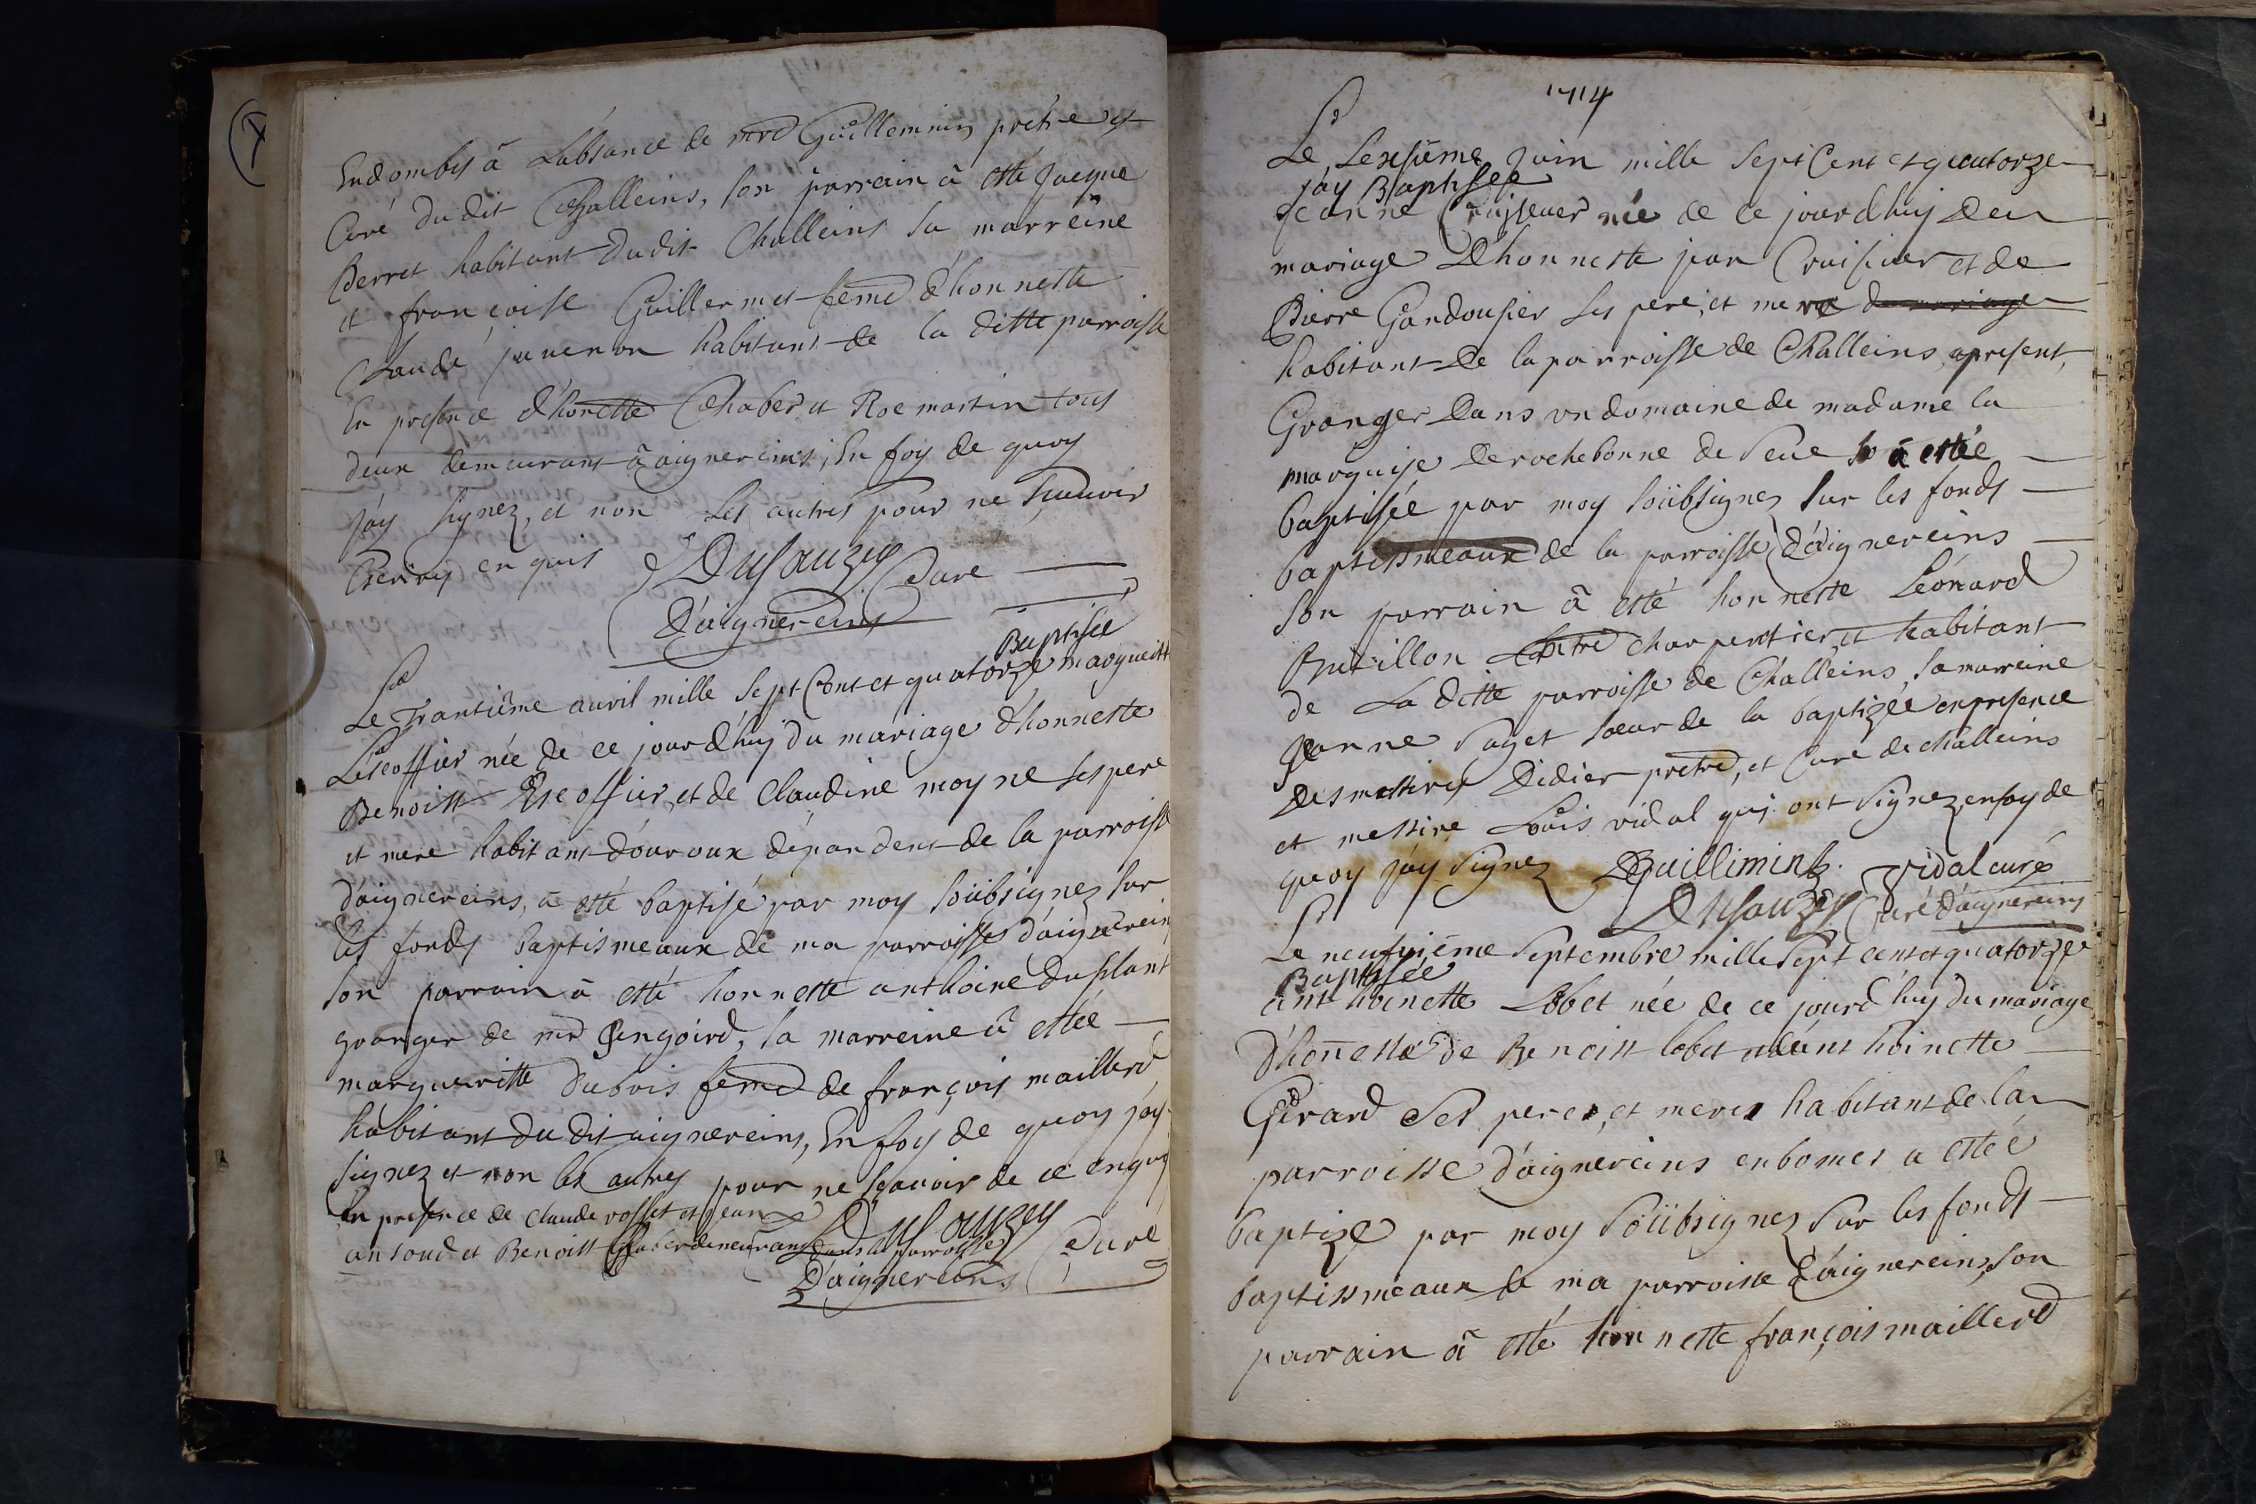 Endombs à Labsance de mre Guillemin prêtre et
Curé du dit Challeins, son parrain à esté Jacque
Berret habitant dudit Challeins sa marreine
et françoise Guillermet feme d'honneste
Claude juvenon habitant de la ditte parroisse
En presence d'honette Chaber et Roe martin tous
deux demeurant à aignereins; En foy de quoy
j'ay signez, et non les autres pour ne sçauvoir
enquis Dusauzey Curé
D'aignereins
Baptisée
Le Trantiême auvril mille sept Cent et quatorze margueritte
Lescoffier née de ce jourd'huy du mariage d'honneste
Benoist Escoffier, et de Claudine moyne ses pere
et mere habitant d'ouroux dépandent de la parroisse
d'aignereins, à esté baptisé par moy soübsignez sur
les fonds baptismeaux de ma parroisse d'aignerein
son parrain à esté honneste anthoine Duplant
granger de mr Gengoird, sa marreine à estée
margueritte Dubois feme de françois maillerd
habitant du dit aignereins, En foy de quoy j'ay
signez et non les autres pour ne sçavoir de ce enquis
En presence de Claude rosset et jean
ansoud et Benoist Chaber demeurant dans la parroisse
Dusauzey Curé
D'aignereins
1714
Le Sexsiême Juin mille sept Cent et quatorze
j'ay Baptisée
Jeanne Croisseuer née de ce jourd'huy Deu
mariage D'honneste jean Croisieer et de
Pierre Gandousier ses pere, et mere du mariage
habitant De la parroisse de Challeins, apresent,
Granger Dans un domaine de madame la
marquise De rochebonne de Seue à estée
baptisée par moy soübsignez sur les fonds
baptissmeaux de la parroisse d'aignereins
son parrain à esté honneste Leónard
Butillon Mtre charpentier et habitant
de La ditte parroisse de Challeins, sa marreine
Jeanne Paget soeur de la baptizée en presence
Des messires Didier prêtre, et Curé de challeins
et messire Loüis vidal qui ont signez en foy de
quoy j'ay signez DGuillimin Vidal curé
Dusauzey Curé d'aignereins
Le neufviême Septembre mille sept cent et quatorze
Baptisée
anthoinette Lobet née de ce jourd'huy du mariage
D'honneste de Benoist lobet et d'anthoinette
Girard Ses peres, et meres habitant de la
parroisse d'aignereins enbomes a estée
baptizé par moy Soübsignez Sur les fonds
baptissmeaux de ma parroisse d'aignereins, son
parrain à esté honneste françois maillerd